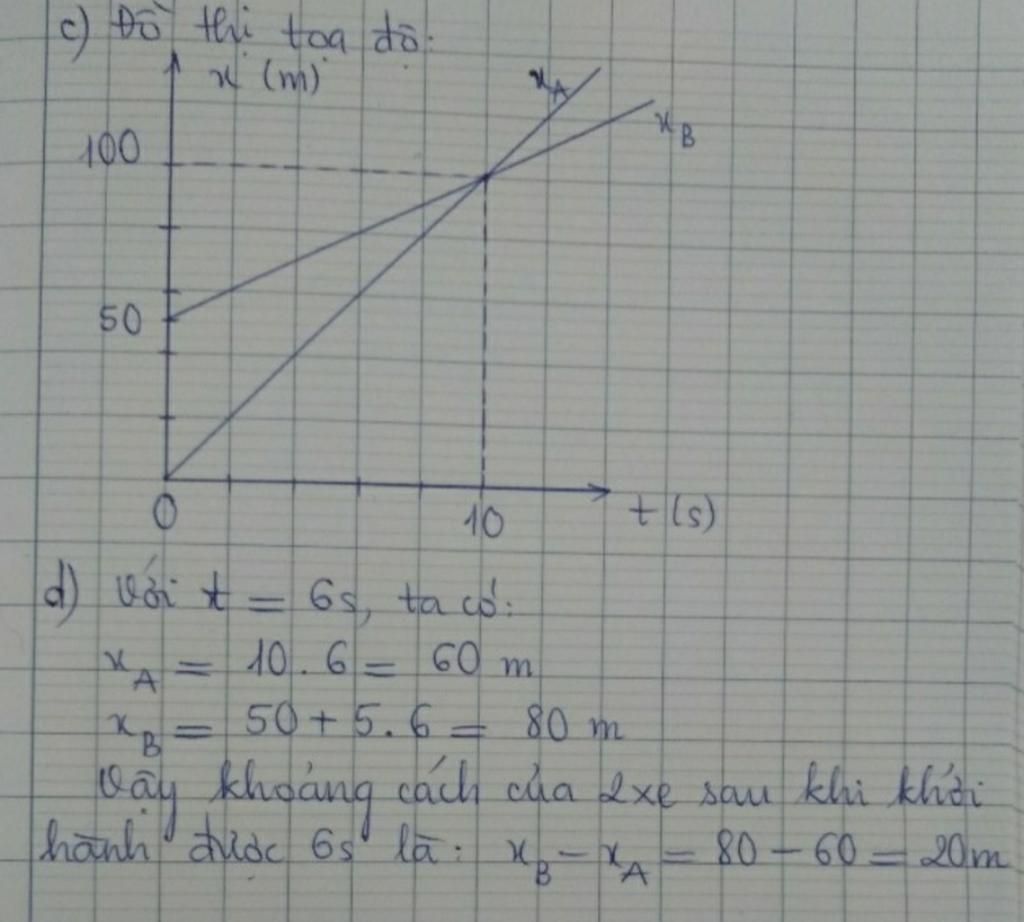 c) Đồ thị tọa độ:
x (m)
x_A
x_B
100
50
0
10
t (s)
d) Với t = 6s, ta có:
x_A = 10 . 6 = 60 m
x_B = 50 + 5. 6 = 80 m
Vậy khoảng cách của 2 xe sau khi khởi
hành được 6s là: x_B - x_A = 80 - 60 = 20m